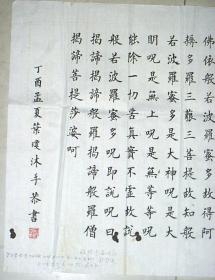 佛依般若波羅蜜多故得阿
耨多羅三藐三菩提故知般
若波羅蜜多是大神呪是大
明呪是無上呪是無等等呪
能除一切苦真實不虛故說
般若波羅蜜多呪即說呪曰
揭諦揭諦般羅揭諦般羅僧
揭諦菩提莎婆呵
丁酉孟夏葉瓊沐手恭書